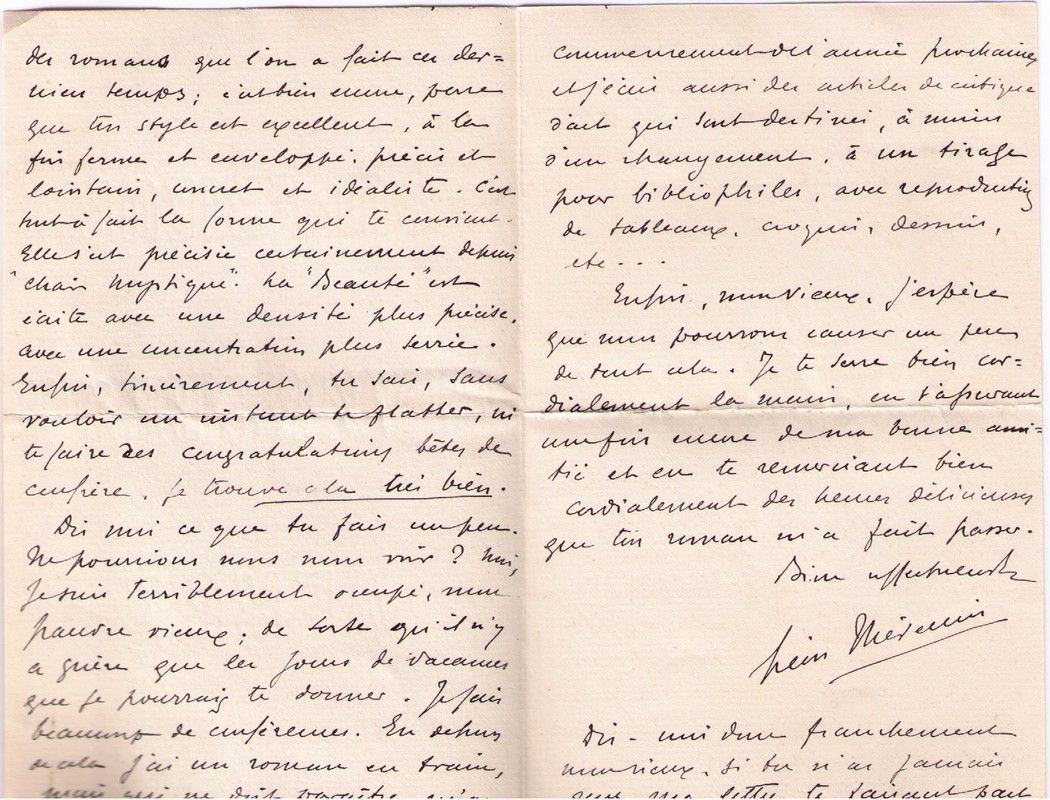 des romans que l'on a fait ces der=
niers temps ; c'est bien encore, parce
que ton style est excellent, à la
fois ferme et enveloppé, précis et
lointain, concret et idéaliste. C'est
tout à fait la forme qui te convient.
Elle s'est précisée certainement depuis
"chair mystique". La "Beauté" est
écrite avec une densité plus précise,
avec une concentration plus serrée.
Enfin, sincèrement, tu sais, sans
vouloir un instant te flatter, ni
te faire des congratulations bêtes de
confrère, je trouve cela très bien.
Dis moi ce que tu fais un peu.
Ne pourrions nous nous voir ? Moi,
je suis terriblement occupé, mon
pauvre vieux, de sorte qu'il n'y
a guère que les jours de vacances
que je pourrais te donner. Je fais
beaucoup de conférences. En dehors
de cela j'ai un roman en train,
mais qui ne doit paraître qu'au
commencement de l'année prochaine
et j'écris aussi des articles de critique
d'art qui sont destinés, à moins
d'un changement, à un tirage
pour bibliophiles, avec reproduction
de tableaux, croquis, dessins,
etc - - -
Enfin, mon vieux, j'espère
que nous pourrons causer un peu
de tout cela. Je te serre bien cor=
dialement la main, en t'assurant
une fois encore de ma bonne ami=
tié et en te remerciant bien
cordialement des heures délicieuses
que ton roman m'a fait passer.
Bien affectueusement
Dis-moi donc franchement
mon vieux, si tu n'as jamais